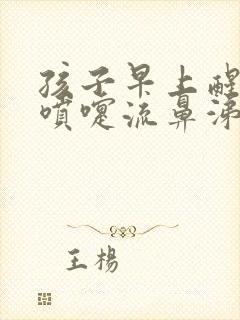 孩子早上醒
喷嚏流鼻涕
王楊